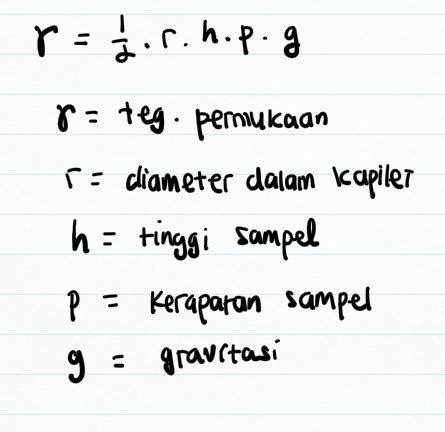 γ = 1/2 . r . h . ρ . g
γ = teg . permukaan
r = diameter dalam kapiler
h = tinggi sampel
ρ = kerapatan sampel
g = gravitasi